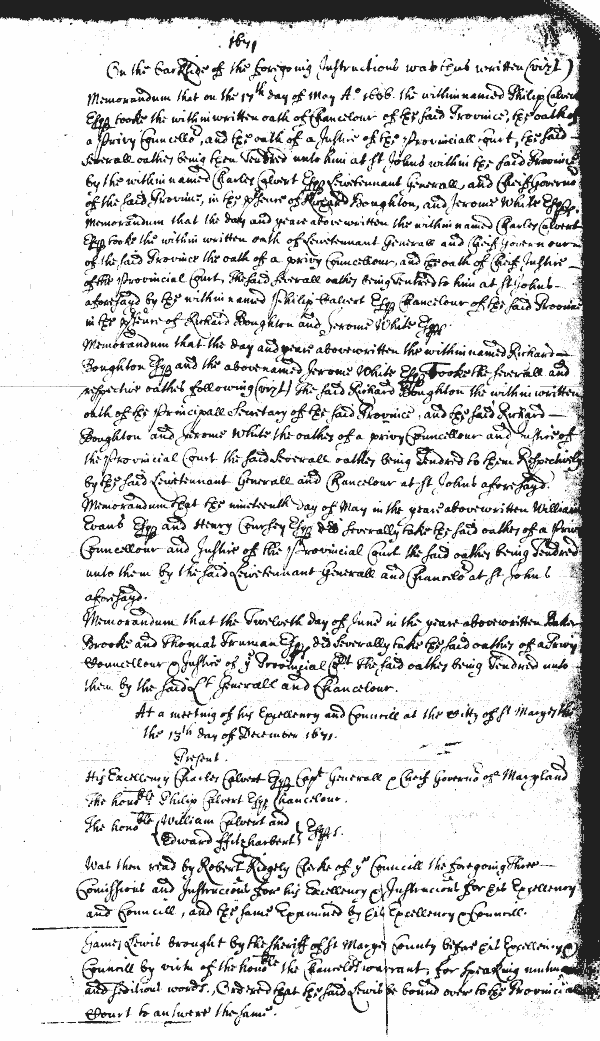 1671
On the backside of the foregoing Instructions was thus written (vizt)
Memorandum that on the 17th day of May Ao 1666. the within named Philip Calvert
Esqr tooke the within written oath of Chancelour of the said Province, the oath of
a Privy Councello, and the oath of a Justice of the Provinciall Court, the said
severall oathes being then Tendred unto him at St Johns within the said Province
by the within named Charles Calvert Esqr Lieutennant Generall, and Cheif Governo
of the said Province, in the psence of Richard Boughton, and Jerome White Esqrs.
Memorandum that the day and yeare above written the within named Charles Calvert
Esqr tooke the within written oath of Lieutennant Generall and Cheif Governour
of the said Province the oath of a privy Councellour, and the oath of Cheif Justice
of the Provincial Court, the said severall oathes being tendred to him at St Johns
aforesayd by the within named Philip Calvert Esqr Chancelour of the said Province
in the psence of Richard Boughton and Jerome White Esqrs.
Memorandum that the day and yeare abovewritten the within named Richard
Boughton Esqr and the above named Jerome White Esqr Tooke the severall and
respective oathes following (vizt) the said Richard Boughton the within written
oath of the Principall Secretary of the said Province, and the said Richard
Boughton and Jerome White the oathes of a privy Councellour and Justice of
the Provincial Court the said severall oathes being Tendred to them Respectively
by the said Lieutennant Generall and Chancelour at St Johns aforesayd.
Memorandum that the nineteenth day of May in the yeare abovewritten William
Evans Esqr and Henry Coursey Esqr did severally take the said oathes of a Privy
Councellour and Justice of the Provincial Court the said oathes being Tendred
unto them by the said Lieutennant Generall and Chancelo at St Johns
aforesayd.
Memorandum that the Twelveth day of June in the yeare abovewritten Baker
Brooke and Thomas Truman Esqrs did severally take the said oathes of a Privy
Councellour & Justice of ye Provincial Crt the said oathes being Tendred unto
them by the said Lt Generall and Chancelour.
At a meeting of his Excellency and Councill at the Citty of St Maryes the
13th day of December 1671.
Present.
His Excellency Charles Calvert Esqr Capt Generall & Cheif Governo of Maryland
The honoble Philip Calvert Esqr Chancelour.
The honoble William Calvert and
Edward Fitzherbert Esqrs.
Was then read by Robert Ridgely Clerke of ye Councill the foregoing Three
Comissions and Instrucions for his Excellency & Instrucions for his Excellency
and Councill, and the same Examined by his Excellency & Councill.
James Lewis brought by the sheriff of St Maryes County before his Excellency &
Councill by virtue of the honoble the Chancelors warrant, for speaking
and seditious words, Ordered that the said Lewis be bound over to the Provincial
Court to answere the same.